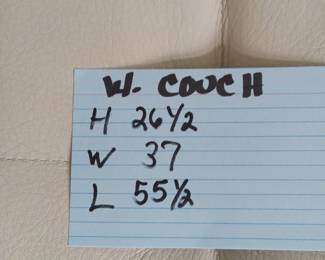 W. COUCH
H 26 1/2
W 37
L 55 1/2